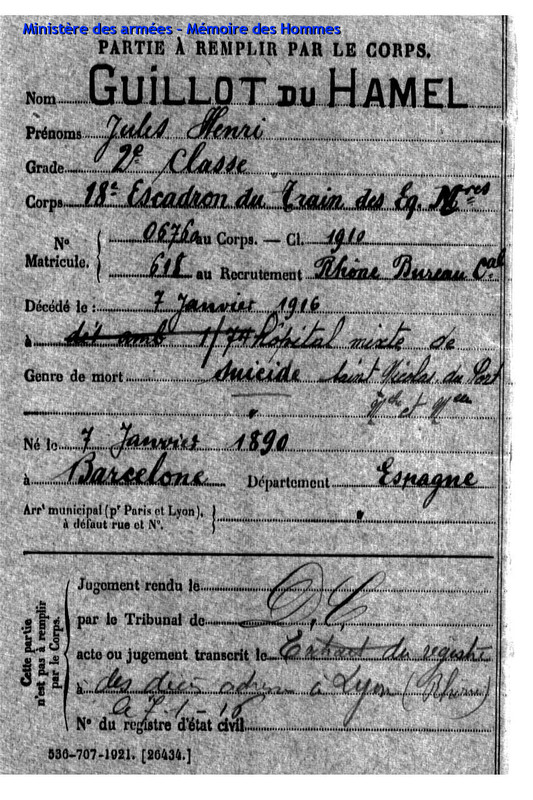 Ministère des armées - Mémoire des Hommes
PARTIE À REMPLIR PAR LE CORPS.
Nom GUILLOT DU HAMEL
Prénoms Jules Henri
Grade 2e Classe
Corps 18e Escadron du Train des Eq. Mres
No Matricule. { 0676 au Corps. — Cl. 1910
618 au Recrutement Rhône Bureau Cal
Décédé le : 7 Janvier 1916
à dét amb 1/74 Hôpital mixte de
Genre de mort suicide Saint Nicolas du Port
Mthe et Mlle
Né le 7 Janvier 1890
à Barcelone Département Espagne
Arrt municipal (pr Paris et Lyon), }
à défaut rue et No.
Cette partie
n'est pas à remplir
par le Corps.
Jugement rendu le
par le Tribunal de D.C
acte ou jugement transcrit le Extrait du registre
à des à Lyon (Rhône)
No du registre d'état civil
536-707-1921. [26434.]